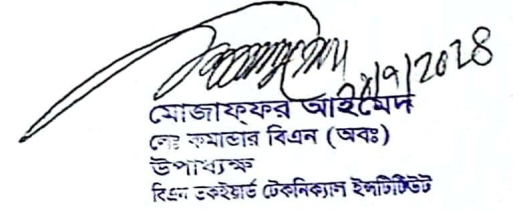 ২৮/৭/২০২৪
মোজাফ্ফর আহমেদ
লেঃ কমান্ডার বিএন (অবঃ)
উপাধ্যক্ষ
বিএন ডকইয়ার্ড টেকনিক্যাল ইনস্টিটিউট